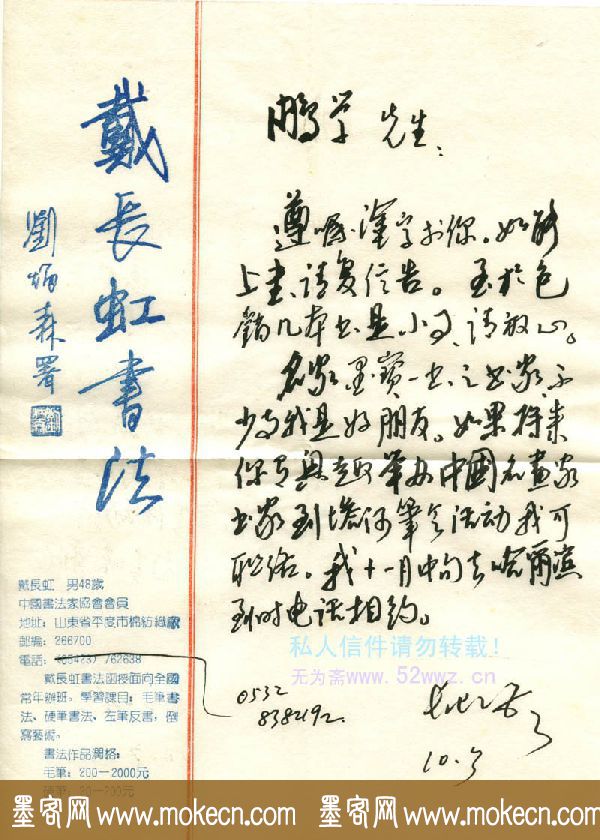 戴長虹書法
劉炳森署
戴長虹 男48歲
中國書法家協會會員
地址：山東省平度市棉紡織廠
郵編：266700
電話：(05423) 762638
戴長虹書法函授面向全國
常年辦班。學習課目：毛筆書
法、硬筆書法、左筆反書，倒
寫藝術。
書法作品潤格：
毛筆：200—2000元
硬筆：20—200元
鵬学先生：
遵嘱汉字于你。如能
上吉、请复信告。至於包
几本书是小了，请放心。
名家墨宝一书之书家，不
少与我是好朋友。如果将来
你有興趣举办中國名畫家
书家到塔河筆会活动我可
联络。我十一月中旬去哈爾滨
到时电话相约。
0532
8382192.
10.3
私人信件请勿转载！
无为斋www.52wwz.cn
墨客网 www.mokecn.com 墨客网 www.mokecn.com